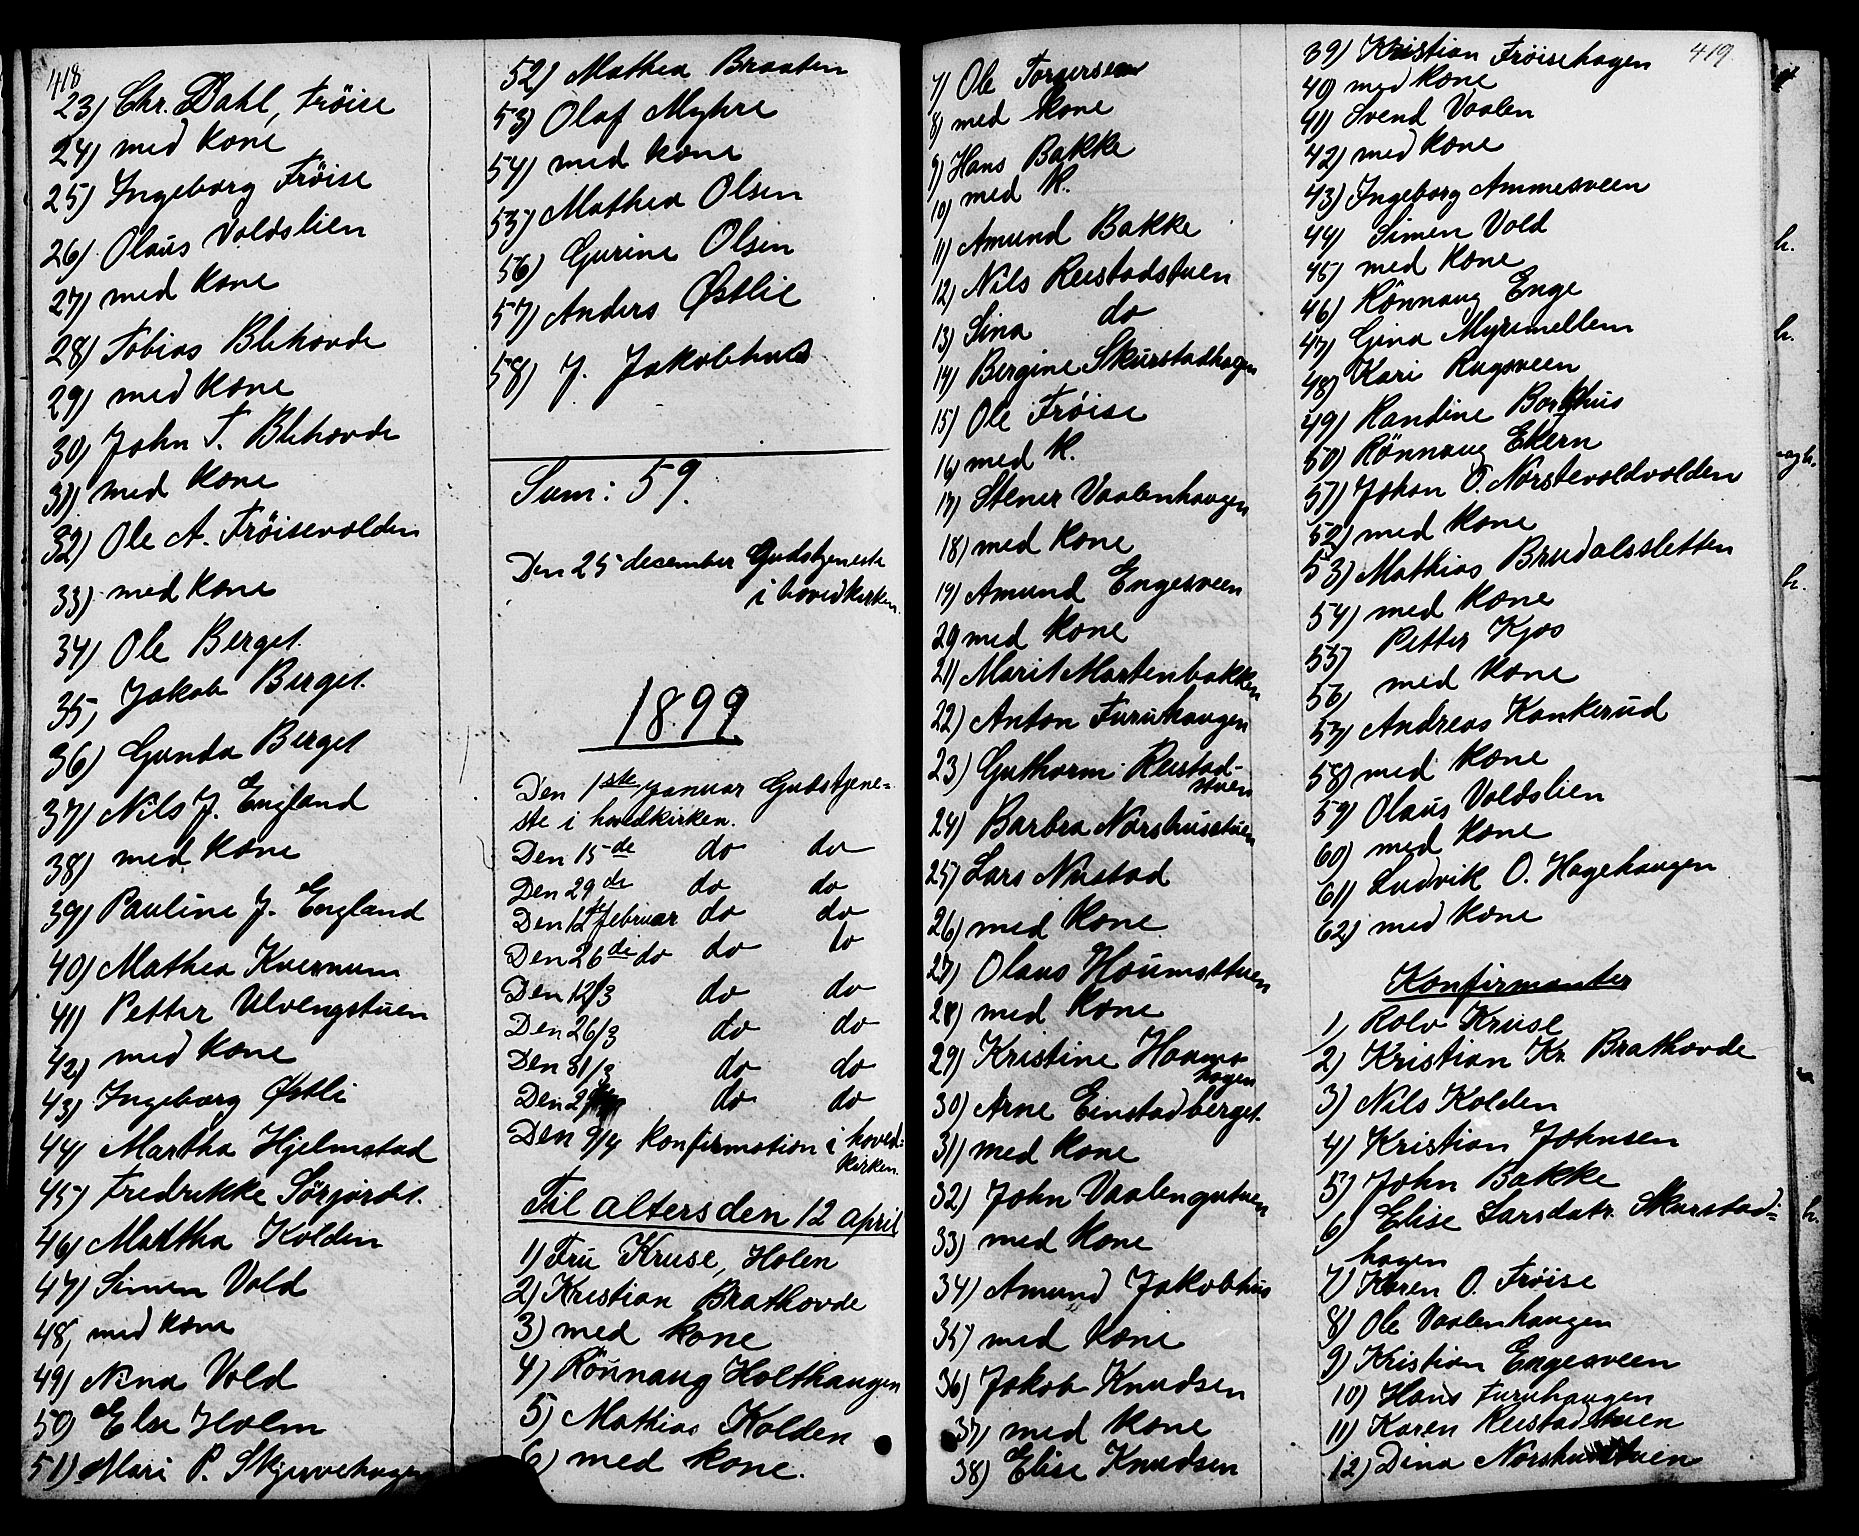 418
23) Chr. Dahl, Fröise
24) med kone
25) Ingeborg Fröise
26) Olaus Voldslien
27) med kone
28) Tobias Blihovde
29) med kone
30) John T. Blihovde
31) med kone
32) Ole A. Fröisevolden
33) med kone
34) Ole Berget
35) Jakob Berget
36) Gunda Berget
37) Nils J. England
38) med kone
39) Pauline J. England
40) Mathea Kvernum
41) Petter Ulvengstuen
42) med kone
43) Ingeborg Østli
44) Martha Hjelmstad
45) Fredrikke Sörjordet
46) Martha Kolden
47) Simen Vold
48) med kone
49) Nina Vold
50) Else Holm
51) Mari P. Skjervehagen
52) Mathea Braaten
53) Olaf Myhre
54) med kone
55) Mathea Olsen
56) Gurine Olsen
57) Anders Østlie
58) J. Jakobhus
Sum: 59.
Den 25 december Gudstjeneste
i hovedkirken.
1899
Den 1ste januar Gudstjene-
ste i hovedkirken.
Den 15de do do
Den 29de do do
Den 12te februar do do
Den 26de do do do
Den 12/3 do do
Den 26/3 do do
Den 31/3 do do
Den 2 do do
Den 9/4 konfirmation i hoved-
kirken.
Til alters den 12 april
1) Fru Kruse, Holen
2) Kristian Brathovde
3) med kone
4) Rönnaug Holthaugen
5) Mathias Kolden
6) med kone.
7) Ole Torgersen
8) med kone
9) Hans Bakke
10) med K.
11) Amund Bakke
12) Nils Reistadstuen
13) Sina do
14) Bergine Skurstadhagen
15) Ole Fröise
16) med K.
17) Stener Vaalenhaugen
18) med kone
19) Amund Engesveen
20) med kone
21) Marit Martenbakken
22) Anton Furuhaugen
23) Guthorm Reistad-
stuen
24) Barbra Norshusstuen
25) Lars Nustad
26) med kone
27) Olaus Houmstuen
28) med kone
29) Kristine Houms-
hagen
30) Arne Einstadberget
31) med kone
32) John Vaalengutuen
33) med kone
34) Amund Jakobhus
35) med kone
36) Jakob Knudsen
37) med kone
38) Elise Knudsen
419.
39) Kristian Fröisehagen
40) med kone
41) Svend Vaalen
42) med kone
43) Ingeborg Ammesveen
44) Simen Vold
45) med kone
46) Rönnaug Enge
47) Gina Myrmellem
48) Kari Rugsveen
49) Randine Borkhus
50) Rönnaug Ekern
51) Johan O. Norstevoldvolden
52) med kone
53) Mathias Brudalssletten
54) med kone
55) Petter Kjos
56) med kone
57) Andreas Kankerud
58) med kone
59) Olaus Voldslien
60) med kone
61) Ludvik O. Hagehaugen
62) med kone
Konfirmanter
1) Rolv Kruse
2) Kristian Kr. Brathovde
3) Nils Kolden
4) Kristian Johnsen
5) John Bakke
6) Elise Larsdatr. Skurstad-
hagen
7) Karen O. Fröise
8) Ole Vaalenhaugen
9) Kristian Engesveen
10) Hans Furuhaugen
11) Karen Reistadstuen
12) Dina Norshusstuen